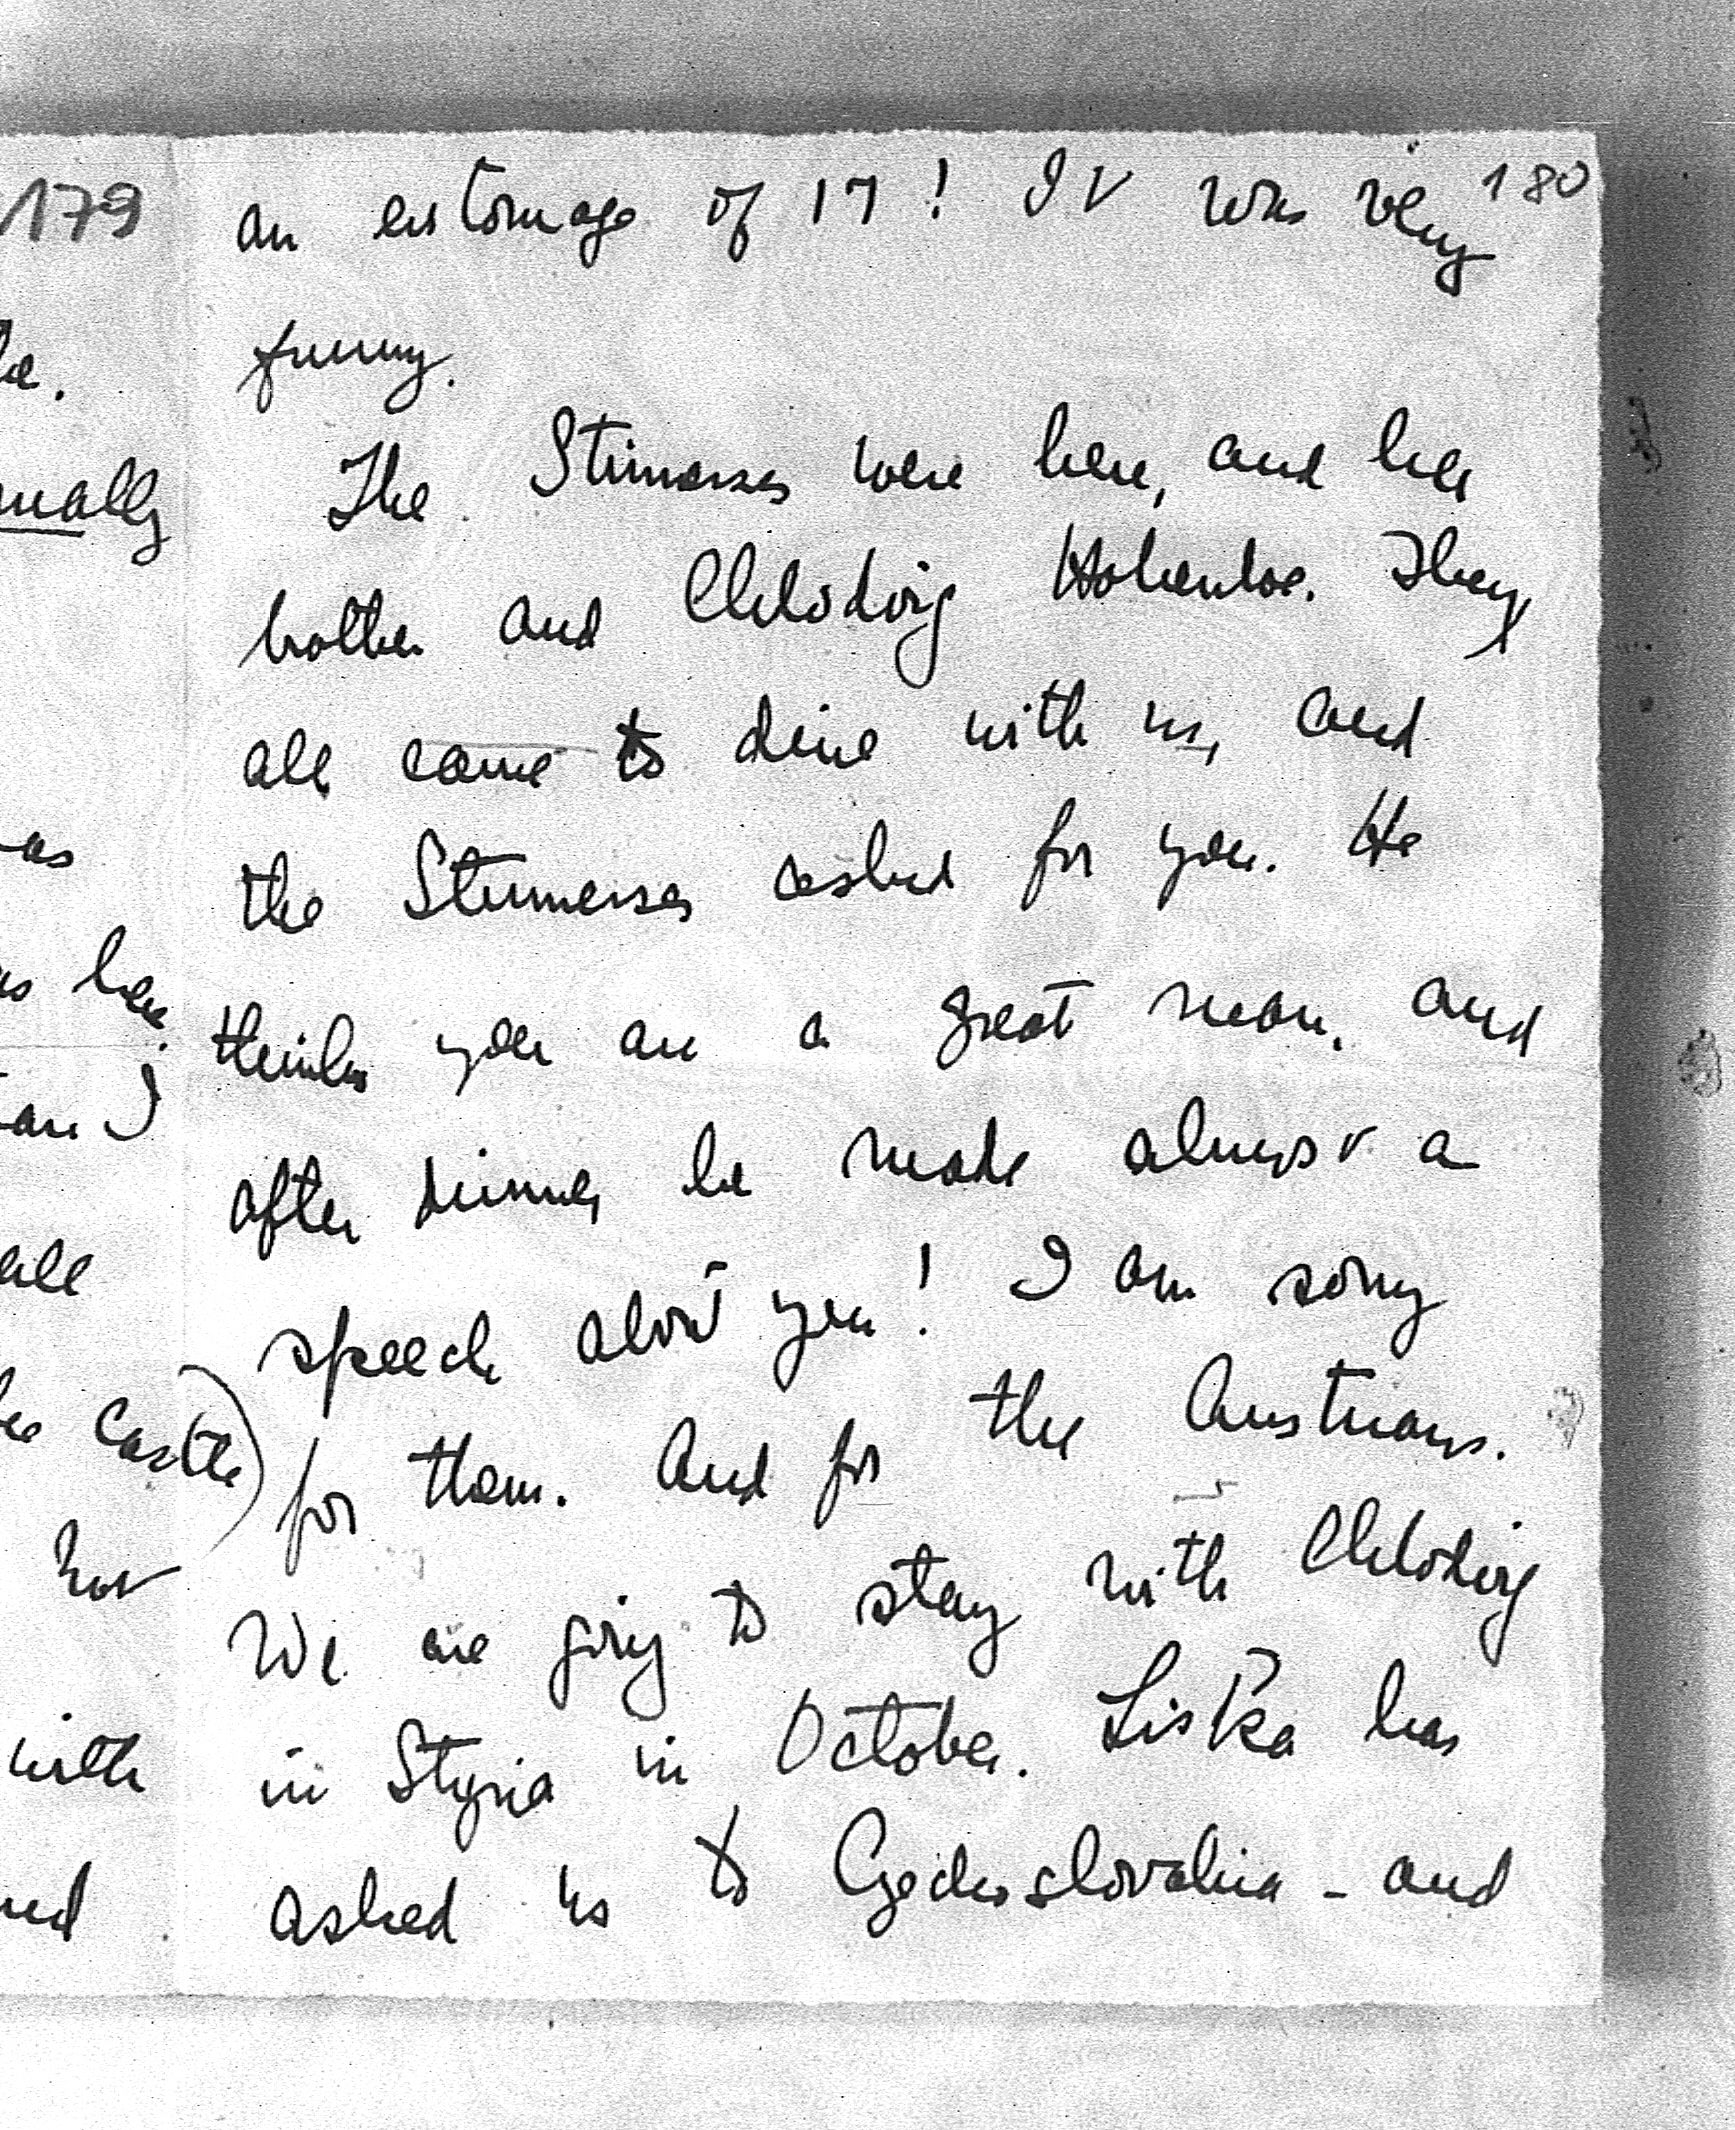 179
180
an entourage of 17! It was very
funny.
The Stürmers were here, and her
brother and Chlodwig Hohenlohe. They
all came to dine with us, and
the Sturmers asked for you. He
thinks you are a great man, and
after dinner he made almost a
speech about you! I am sorry
for them. And for the Austrians.
We are going to stay with Chlodwig
in Styria in October. Liska has
asked us to Czechoslovakia - and
le.
ually
as
as here.
are I
all
the castle)
not
with